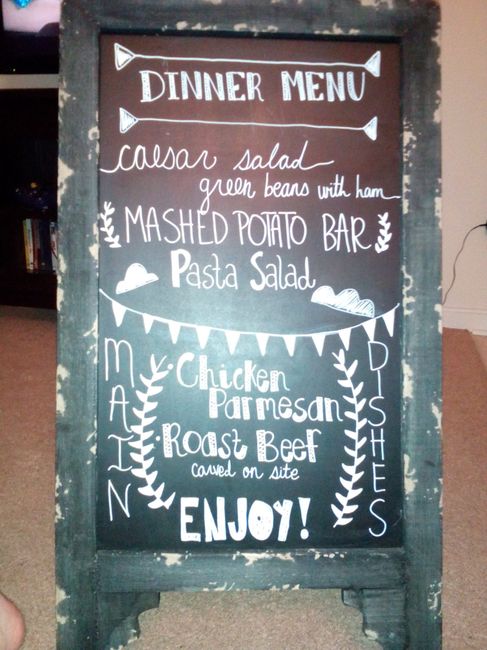 DINNER MENU
caesar salad
green beans with ham
MASHED POTATO BAR
Pasta Salad
MAIN
DISHES
Chicken
Parmesan
Roast Beef
carved on site
ENJOY!